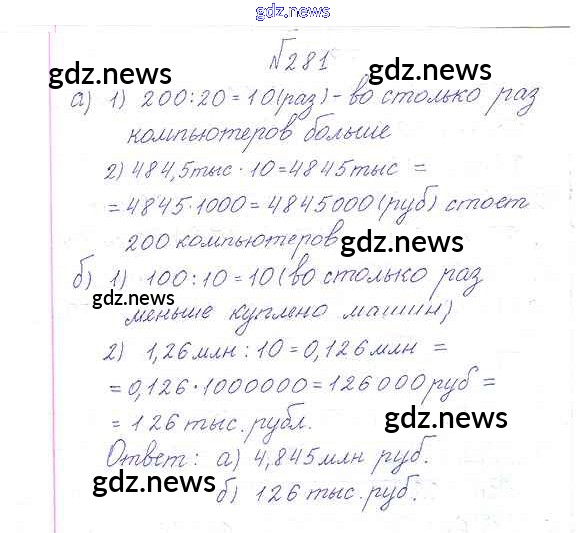 gdz.news
№281
gdz.news gdz.news
а) 1) 200:20=10(раз)-во столько раз
компьютеров больше
2) 484,5тыс·10=4845тыс =
=4845·1000=4845000(руб) стоет
200 компьютеров gdz.news
б) 1) 100:10=10(во столько раз
gdz.news
меньше куплено машин)
2) 1,26млн:10=0,126млн =
=0,126·1000000=126000руб=
=126тыс.рубл. gdz.news
Ответ: а) 4,845млн руб.
gdz.news
б) 126тыс.руб.